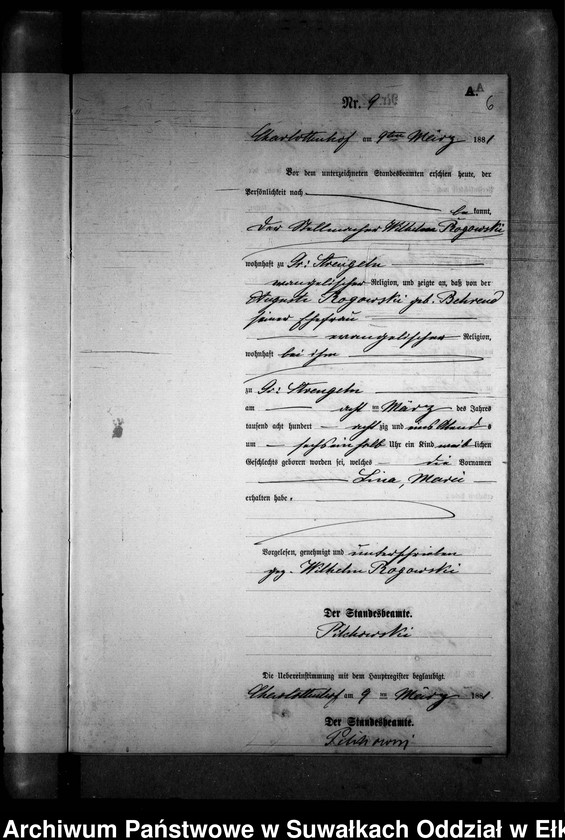 A.
6
Nr. 9
Charlottenhof am 9ten März 1881
Vor dem unterzeichneten Standesbeamten erschien heute, der
Persönlichkeit nach
be kannt,
der Stellmacher Wilhelm Rogowski
wohnhaft zu Gr: Strengeln
evangelischer Religion, und zeigte an, daß von der
Auguste Rogowski geb. Behrend
seiner Ehefrau
evangelischer Religion,
wohnhaft bei ihm
zu Gr: Strengeln
am acht ten März des Jahres
tausend acht hundert acht zig und eins Abends
um sechs ein halb Uhr ein Kind weib lichen
Geschlechts geboren worden sei, welches die Vornamen
Lina,
erhalten habe.
Vorgelesen, genehmigt und unterschrieben
gez. Wilhelm Rogowski
Der Standesbeamte.
Pilchowski
Die Uebereinstimmung mit dem Hauptregister beglaubigt.
Charlottenhof am 9 ten März 1881
Der Standesbeamte.
Archiwum Państwowe w Suwałkach Oddział w Ełk